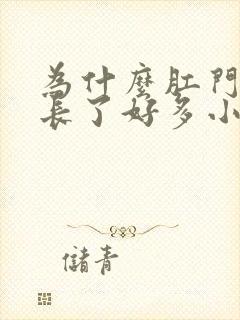 為什麼肛門
長了好多小
儲青